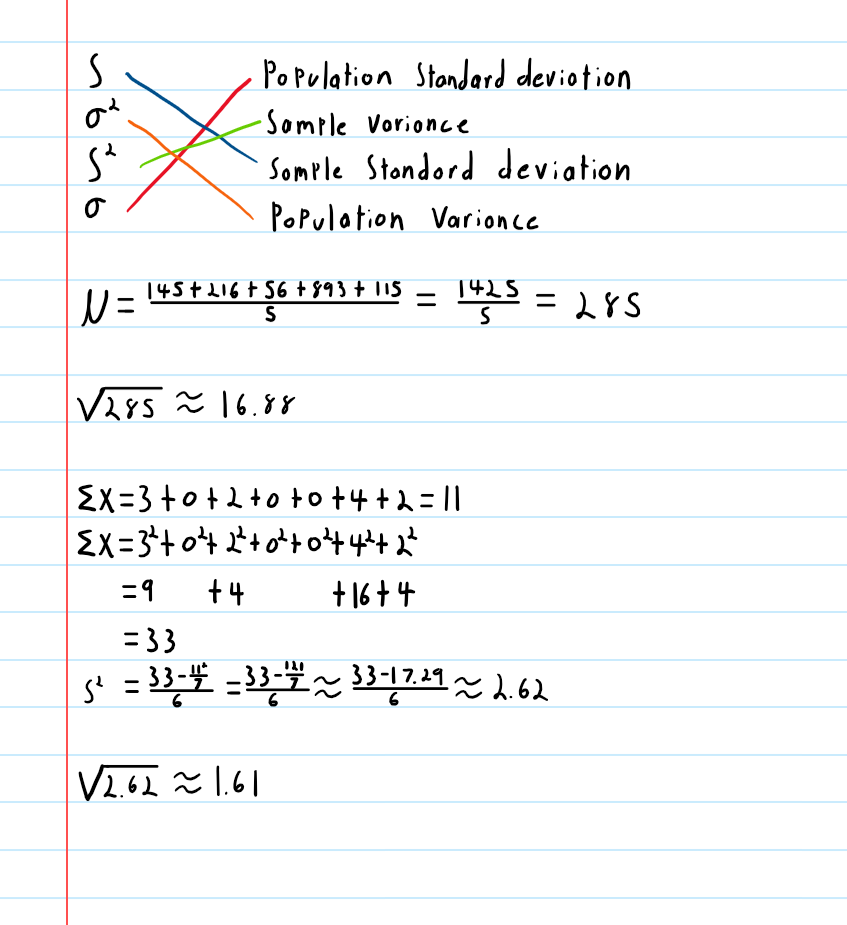 S Population Standard deviation
σ² Sample Variance
S² Sample Standard deviation
σ Population Variance
μ = \frac{145+216+56+893+115}{5} = \frac{1425}{5} = 285
√285 ≈ 16.88
Σx=3+0+2+0+0+4+2=11
Σx=3²+0²+2²+0²+0²+4²+2²
=9 +4 +16+4
=33
s² = \frac{33-\frac{11²}{7}}{6} = \frac{33-\frac{121}{7}}{6} ≈ \frac{33-17.29}{6} ≈ 2.62
√2.62 ≈ 1.61